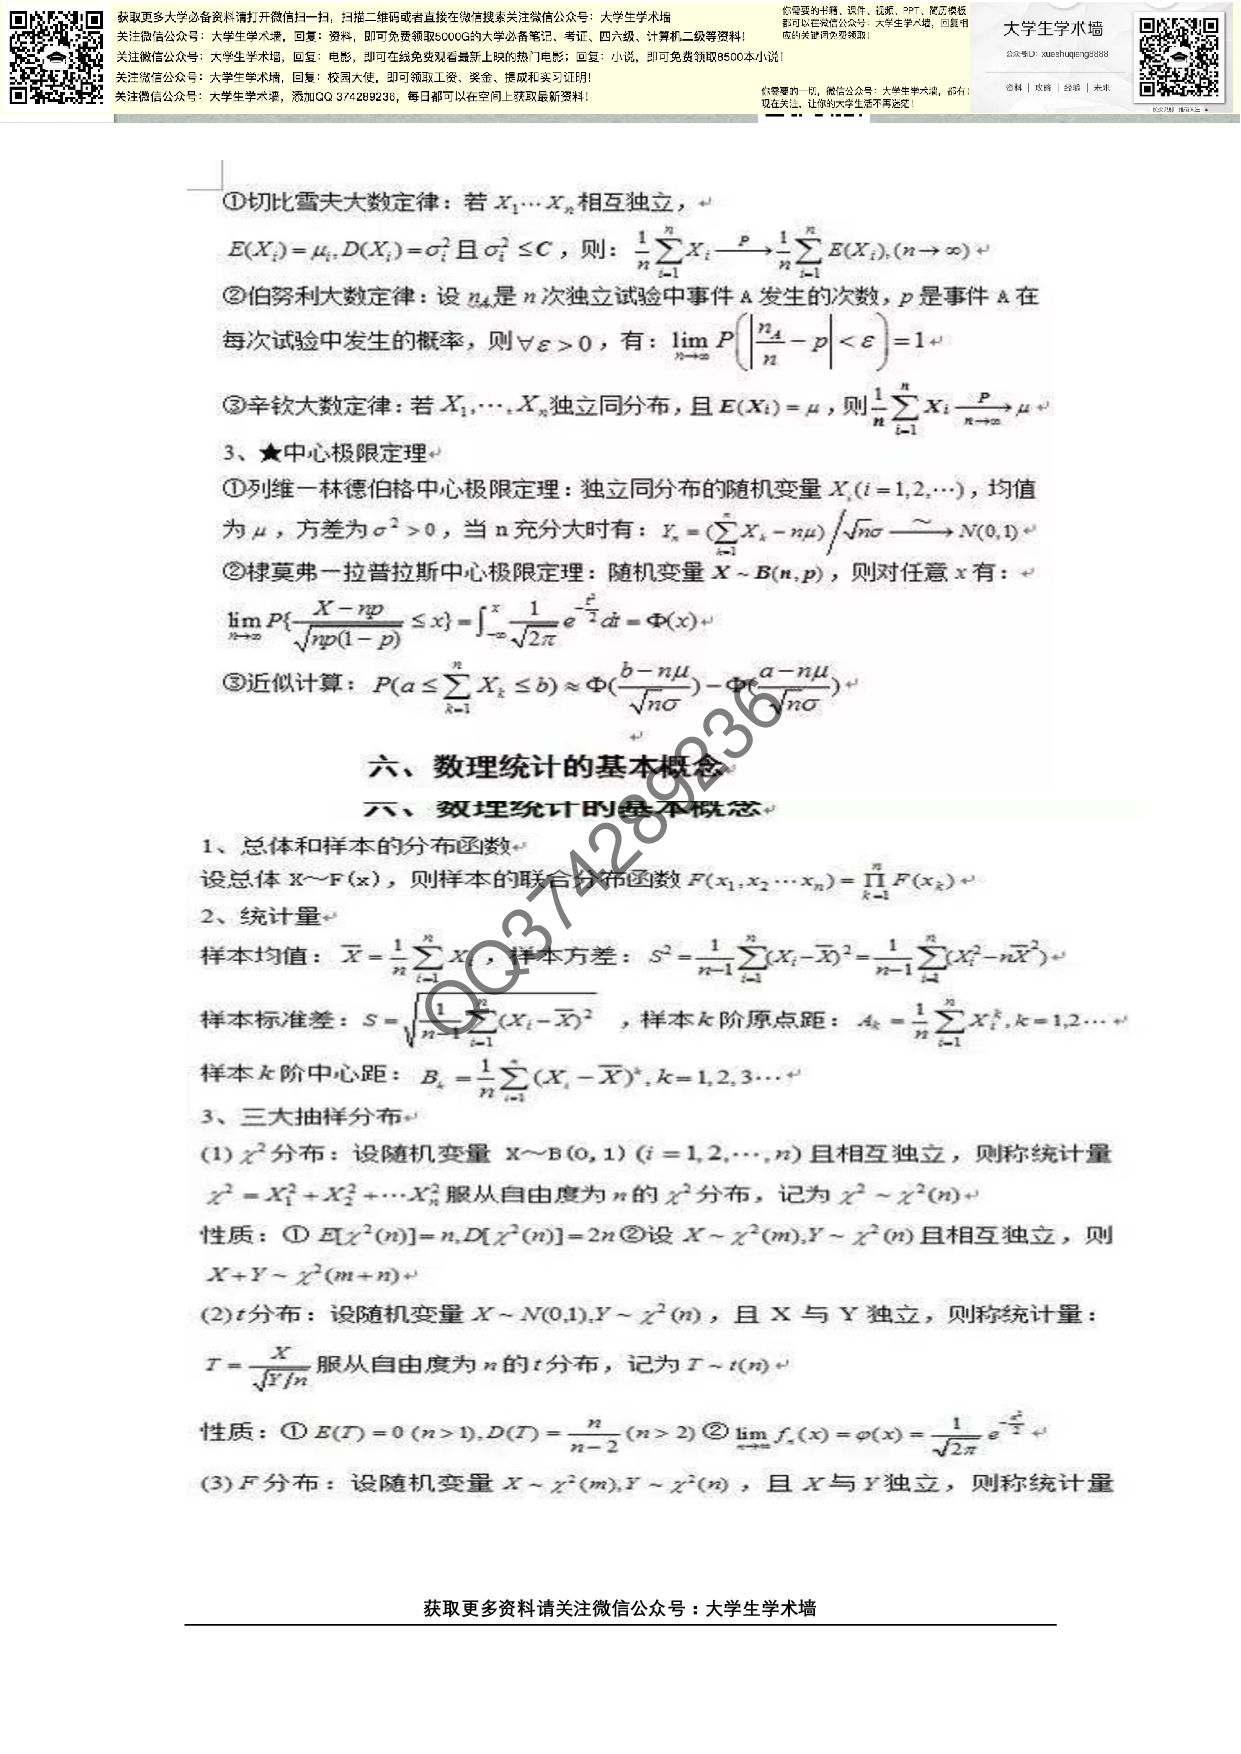 获取更多大学必备资料请打开微信扫一扫，扫描二维码或者直接在微信搜索关注微信公众号：大学生学术墙
关注微信公众号：大学生学术墙，回复：资料，即可免费领取5000G的大学必备笔记、考证、四六级、计算机二级等资料！
关注微信公众号：大学生学术墙，回复：电影，即可在线免费观看最新上映的热门电影；回复：小说，即可免费领取8500本小说！
关注微信公众号：大学生学术墙，回复：校园大使，即可领取工资、奖金、提成和实习证明！
关注微信公众号：大学生学术墙，添加QQ 374289236，每日都可以在空间上获取最新资料！
你需要的书籍、课件、视频、PPT、简历模板
都可以在微信公众号：大学生学术墙，回复相
应的关键词免费领取！
你需要的一切，微信公众号：大学生学术墙，都有！
现在关注，让你的大学生活不再迷茫！
大学生学术墙
公众号ID：xueshuqiang8888
资料 | 攻略 | 经验 | 未来
①切比雪夫大数定律：若 X₁⋯Xₙ 相互独立，
E(Xᵢ)=μᵢ, D(Xᵢ)=σᵢ² 且 σᵢ² ≤C，则：1/n ∑(i=1→n) Xᵢ —P→ 1/n ∑(i=1→n) E(Xᵢ), (n→∞)
②伯努利大数定律：设 n_A 是 n 次独立试验中事件 A 发生的次数，p 是事件 A 在
每次试验中发生的概率，则∀ε>0，有：lim(n→∞) P(|n_A/n − p|<ε)=1
③辛钦大数定律：若 X₁,⋯,Xₙ独立同分布，且 E(Xi)=μ，则 1/n ∑(i=1→n) Xi —P(n→∞)→ μ
3、★中心极限定理
①列维—林德伯格中心极限定理：独立同分布的随机变量 Xᵢ(i=1,2,⋯)，均值
为 μ，方差为 σ²>0，当 n 充分大时有：Yₙ=(∑(k=1→n) X_k − nμ)/√nσ —~→ N(0,1)
②棣莫弗—拉普拉斯中心极限定理：随机变量 X~B(n,p)，则对任意 x 有：
lim(n→∞) P{(X−np)/√(np(1−p)) ≤x}=∫(−∞→x) 1/√(2π) e^(−t²/2) dt=Φ(x)
③近似计算：P(a≤∑(k=1→n) X_k ≤b)≈Φ((b−nμ)/(√nσ))−Φ((a−nμ)/(√nσ))
六、数理统计的基本概念
六、数理统计的基本概念
1、总体和样本的分布函数
设总体 X～F(x)，则样本的联合分布函数 F(x₁,x₂⋯xₙ)=∏(k=1→n) F(x_k)
2、统计量
样本均值：X̄=1/n ∑(i=1→n) Xᵢ，样本方差：S²=1/(n−1) ∑(i=1→n)(Xᵢ−X̄)²=1/(n−1) ∑(i=1→n)(Xᵢ²−nX̄²)
样本标准差：S=√(1/(n−1) ∑(i=1→n)(Xᵢ−X̄)²)，样本k阶原点距：A_k=1/n ∑(i=1→n) Xᵢᵏ, k=1,2⋯
样本k阶中心距：B_k=1/n ∑(i=1→n)(Xᵢ−X̄)ᵏ, k=1,2,3⋯
3、三大抽样分布
(1) χ²分布：设随机变量 X～B(0,1)(i=1,2,⋯,n)且相互独立，则称统计量
χ²=X₁²+X₂²+⋯Xₙ²服从自由度为n的χ²分布，记为χ²~χ²(n)
性质：① E[χ²(n)]=n,D[χ²(n)]=2n②设 X~χ²(m),Y~χ²(n)且相互独立，则
X+Y~χ²(m+n)
(2)t分布：设随机变量X~N(0,1),Y~χ²(n)，且 X 与 Y 独立，则称统计量：
T=X/√(Y/n)服从自由度为n的t分布，记为T~t(n)
性质：① E(T)=0 (n>1),D(T)=n/(n−2) (n>2)② lim(n→∞) fₙ(x)=φ(x)=1/√(2π) e^(−x²/2)
(3)F分布：设随机变量X~χ²(m),Y~χ²(n)，且X与Y独立，则称统计量
QQ374289236
获取更多资料请关注微信公众号：大学生学术墙